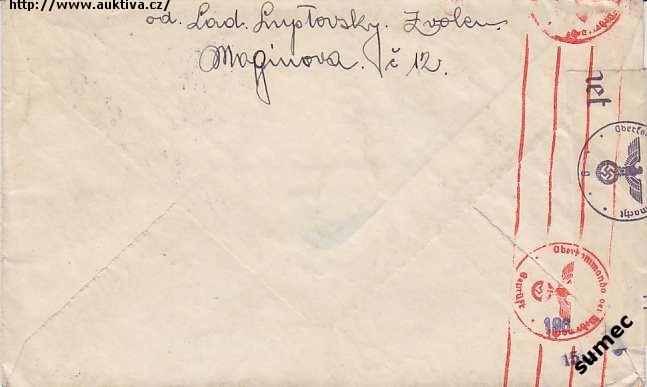 http://www.auktiva.cz/
od. Lad. Luptovsky. Zvolen.
Maginova. č 12.
net
Oberko
macht
Oberkommando der Wehrmacht
Geprüft
196
15
sumec